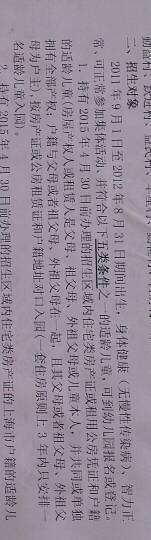 二、招生对象
2011年9月1日至2012年8月31日期间出生，身体健康（无慢性传染病）、智力正
常、可正常参加集体活动、并符合以下五类条件之一的适龄儿童，可到幼儿园报名或登记。
1、持有2015年4月30日前办理的招生区域内住宅类房产证或租用公房凭证和户籍
的适龄儿童（房屋产权人或租赁人是父母、祖父母、外祖父母或儿童本人，并共同或单独
拥有全部产权；户籍与父母或者祖父母、外祖父母在一起，且其父母或者祖父母、外祖父
母为户主），按房产证或公房租赁证和户籍地址对口入园（一套住房原则上3年内只安排一
名适龄儿童入园）。
2、持有2015年4月30日前办理的招生区域内住宅类房产证的上海市户籍的适龄儿